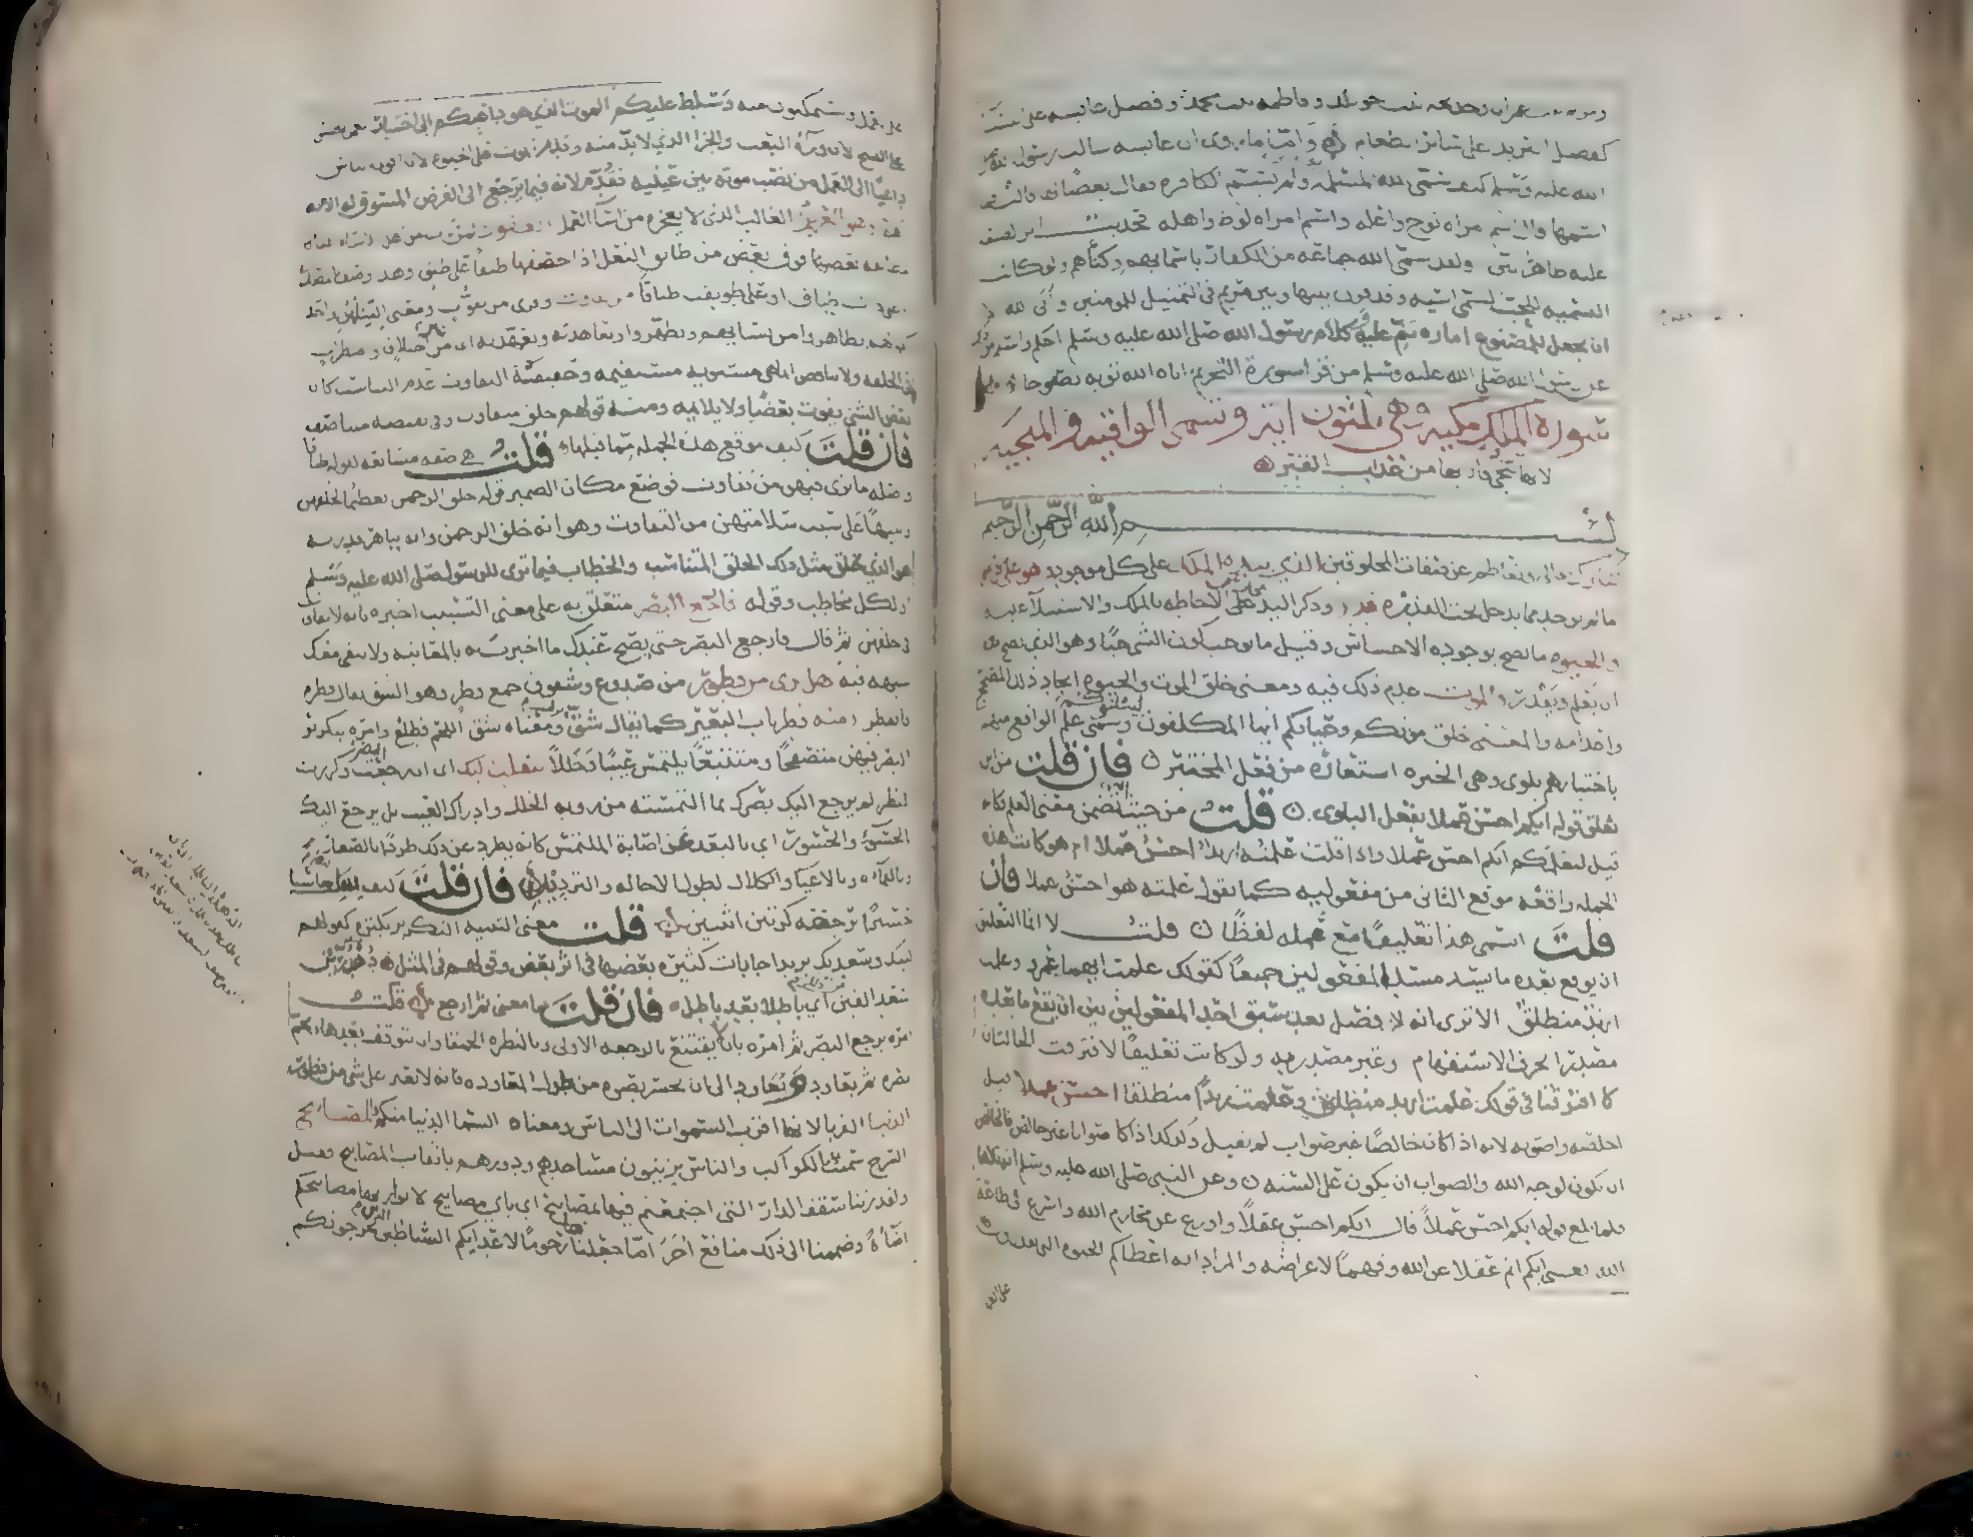 ومريم بنت عمران وخديجة بنت خويلد وفاطمة بنت محمد وفضل عائشة على النساء
كفضل الثريد على سائر الطعام وأما ما روي ان عائشة سالت رسول الله صلى
الله عليه وسلم كيف سمى الله المسلمة ولم يسم الكافرة فقال بغضا لها قالت وما
اسمها قال اسم امراة نوح واعلة واسم امراة لوط واهلة فحديث اثر الصنعة
عليه ظاهر بين ولقد سمى الله جماعة من الكفار باسمائهم وكناهم ولو كانت
التسمية للحب لسمى اسية وقد قرن بينها وبين مريم في التمثيل للمومنين وأبى الله الا
ان يجعل للمصنوع امارة تنم عليه وكلام رسول الله صلى الله عليه وسلم احكم واسلم من ذلك
عن رسول الله صلى الله عليه وسلم من قرا سورة التحريم اتاه الله توبة نصوحا
سورة الملك مكية وهي ثلثون اية وتسمى الواقية والمنجية
لانها تنجي قاريها من عذاب القبر
بسم الله الرحمن الرحيم
تبارك تعالى وتعاظم عن صفات المخلوقين الذي بيده الملك على كل موجود وهو على كل
ما لم يوجد مما يدخل تحت القدرة قدير وذكر اليد مجاز عن الاحاطة بالملك والاستيلاء عليه
والحيوة ما يصح بوجوده الاحساس وقيل ما يوجب كون الشي حيا وهو الذي يصح منه
ان يعلم ويقدر والموت عدم ذلك فيه ومعنى خلق الموت والحيوة ايجاد ذلك المصحح
واعدامه والمعنى خلق موتكم وحياتكم ايها المكلفون ليبلوكم وسمى علم الواقع منهم
باختيارهم بلوى وهي الخبرة استعارة من فعل المختبر فان قلت من اين
تعلق قوله ايكم احسن عملا بفعل البلوى قلت من حيث انه تضمن معنى العلم فكانه
قيل ليعلمكم ايكم احسن عملا واذا قلت علمته ازيد احسن عملا ام هو كانت هذه
الجملة واقعة موقع الثاني من مفعوليه كما تقول علمته هو احسن عملا فان
قلت اتسمي هذا تعليقا قلت لا انما التعليق
ان يوقع بعده ما يسد مسد المفعولين جميعا كقولك علمت ايهما عمرو وعلمت
ازيد منطلق الا ترى انه لا فصل بعد سبق احد المفعولين بين ان يقع ما بعده
مصدرا بحرف الاستفهام وغير مصدر به ولو كانت تعليقا لافترقت الحالتان
كما افترقتا في قولك علمت ازيد منطلق وعلمت زيدا منطلقا احسن عملا قيل
اخلصه واصوبه لانه اذا كان خالصا غير صواب لم يقبل وكذلك اذا كان صوابا غير خالص فالخالص
ان يكون لوجه الله والصواب ان يكون على السنة وعن النبي صلى الله عليه وسلم انه تلاها
فلما بلغ قوله ايكم احسن عملا قال ايكم احسن عقلا واورع عن محارم الله واسرع في طاعة
الله يعني ايكم اتم عقلا عن الله وفهما لاغراضه والمراد انه اعطاكم الحيوة التي تقدرون بها
على العمل
على العمل وتستمكنون منه وسلط عليكم الموت الذي هو داعيكم الى اختيار العمل الحسن
على القبيح لان وراءه البعث والجزا الذي لا بد منه وقدم الموت على الحيوة لان اقوى الناس
داعيا الى العمل من نصب موته بين عينيه فقدم لانه فيما يرجع الى الغرض المسوق له الاية
اهم وهو العزيز الغالب الذي لا يعجزه من اسا العمل الغفور لمن تاب من اهل الاساة طباقا
مطابقة بعضها فوق بعض من طابق النعل اذا خصفها طبقا على طبق وهذا وصف بالمصدر
او على ذات طباق او على طوبقت طباقا من تفاوت وقرئ من تفوت ومعنى البنائين واحد
كقولهم تظاهروا من نسائهم وتظهروا وتعاهدته وتعهدته اي من اختلاف واضطراب
في الخلقة ولا تناقض انما هي مستوية مستقيمة وحقيقة التفاوت عدم التناسب كان
بعض الشي يفوت بعضا ولا يلائمه ومنه قولهم خلق متفاوت وفي نقيضه متناصف
فان قلت كيف موقع هذه الجملة مما قبلها قلت هي صفة مشايعة لقوله طباقا
واصله ما ترى فيهن من تفاوت فوضع مكان الضمير قوله خلق الرحمن تعظيما لخلقهن
وتنبيها على سبب سلامتهن من التفاوت وهو انه خلق الرحمن وانه بباهر قدرته
هو الذي يخلق مثل ذلك الخلق المتناسب والخطاب فيما ترى للرسول صلى الله عليه وسلم
او لكل مخاطب وقوله فارجع البصر متعلق به على معنى التسبيب اخبره بانه لا تفاوت
في خلقهن ثم قال فارجع البصر حتى يصح عندك ما اخبرت به بالمعاينة ولا يبقى معك
شبهة فيه هل ترى من فطور من صدوع وشقوق جمع فطر وهو الشق يقال فطره
فانفطر ومنه فطر ناب البعير كما يقال شق ومعناه شق اللحم فطلع وامره بتكرير
البصر فيهن متصفحا ومتتبعا يلتمس عيبا وخللا ينقلب اليك اي ان رجعت البصر وكررت
النظر لم يرجع اليك بصرك بما التمسته من روية الخلل وادراك العيب بل يرجع اليك
بالخسوء والحسور اي بالبعد عن اصابة الملتمس كانه يطرد عن ذلك طردا بالصغار
والقماءة وبالاعياء والكلال لطول الاجالة والترديد فان قلت كيف ينقلب البصر خاسئا
حسيرا برجعه كرتين اثنتين قلت معنى التثنية التكرير بكثرة كقولهم
لبيك وسعديك يريد اجابات كثيرة بعضها في اثر بعض وقولهم في المثل دهدرين
سعد القين اي باطلا بعد باطل فان قلت فما معنى ثم ارجع قلت
امره برجع البصر ثم امره بان لا يقتنع بالرجعة الاولى وبالنظرة الحمقا وان يتوقف بعدها ويجم
بصره ثم يعاود ويعاود الى ان يحسر بصره من طول المعاودة فانه لا يعثر على شي من فطور
الدنيا القربى لانها اقرب السموات الى الناس ومعناه السما الدنيا منكم والمصابيح
السرج سميت بها الكواكب والناس يزينون مساجدهم ودورهم باثقاب المصابيح فقيل
ولقد زينا سقف الدار التي اجتمعتم فيها بمصابيح اي باي مصابيح لا توازيها مصابيحكم
اضاءة وضممنا الى ذلك منافع اخر انا جعلناها رجوما لاعدائكم الشياطين الذين يخرجونكم